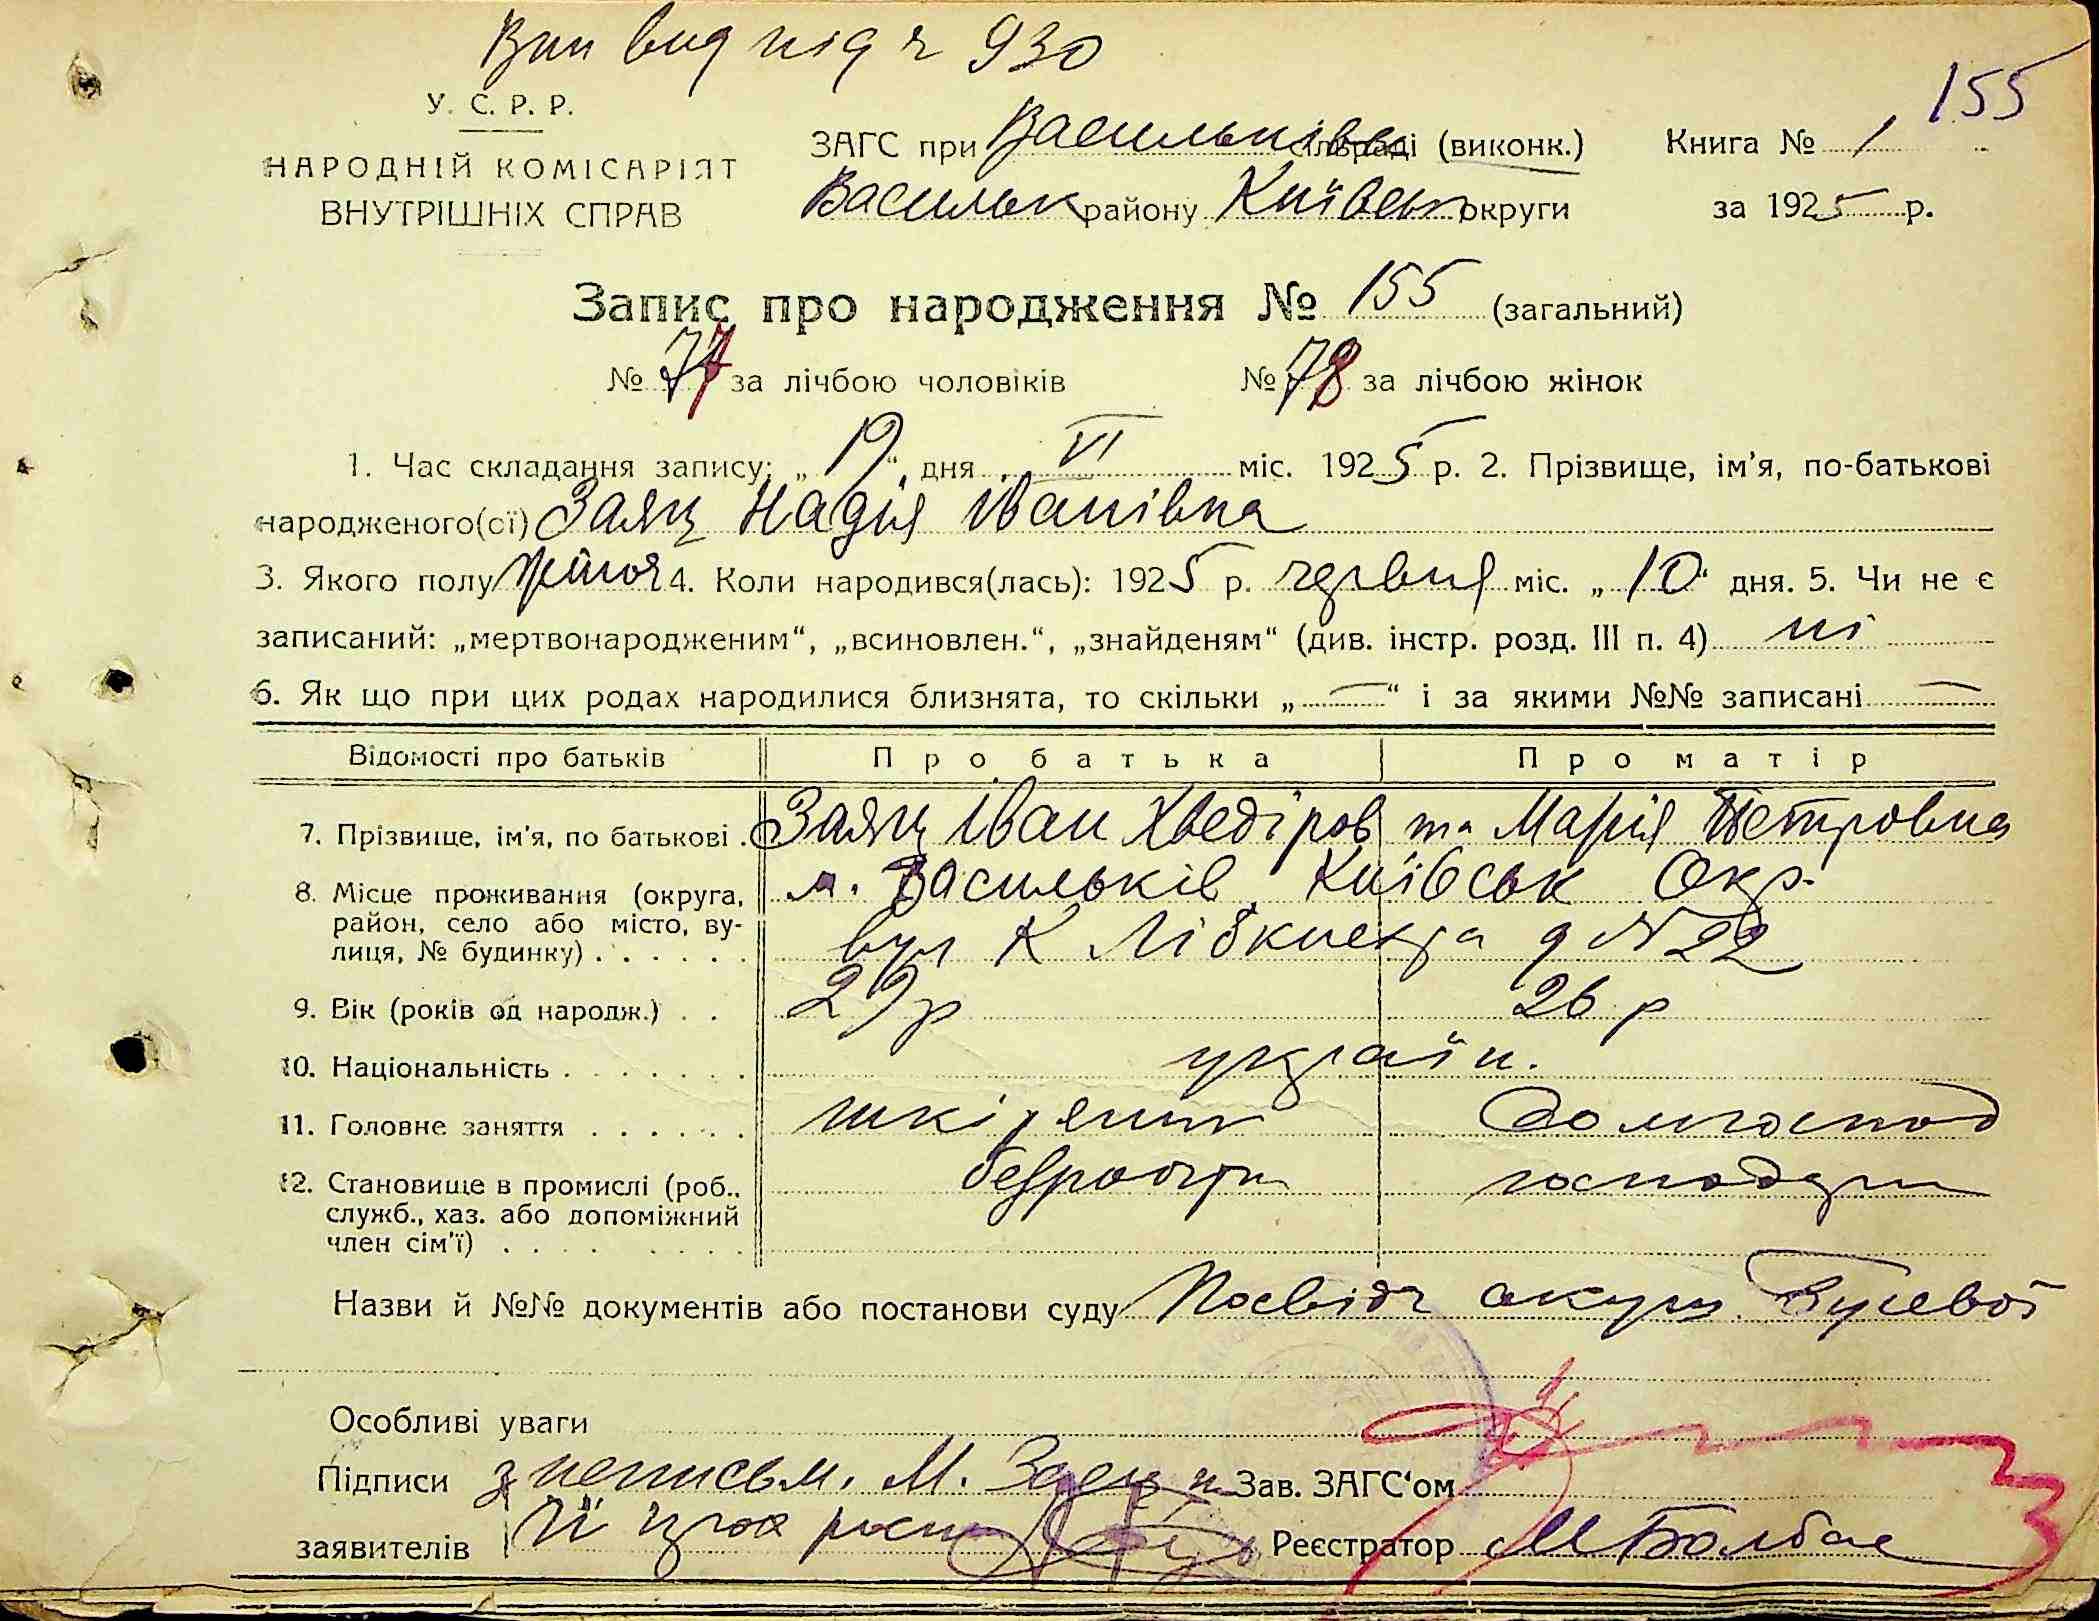 Вип вид під ч 930
155
У. С. Р. Р.
НАРОДНІЙ КОМІСАРІЯТ
ВНУТРІШНІХ СПРАВ
ЗАГС при Васильківськ сільраді (виконк.)
Васильк району Київськ округи
Книга № 1
за 1925 р.
Запис про народження № 155 (загальний)
№ 77 за лічбою чоловіків № 78 за лічбою жінок
1. Час складання запису: „ 19 “ дня VI міс. 1925 р. 2. Прізвище, ім'я, по-батькові
народженого(сї) Заяц Надія Іванівна
3. Якого полу жіноч 4. Коли народився(лась): 1925 р. червня міс. „ 10 “ дня. 5. Чи не є
записаний: „мертвонародженим“, „всиновлен.“, „знайденям“ (див. інстр. розд. III п. 4) ні
6. Як що при цих родах народилися близнята, то скільки „ — “ і за якими №№ записані —
Відомості про батьків Про батька Про матір
7. Прізвище, ім'я, по батькові . Заяц Іван Хведіров та Марія Петровна
8. Місце проживання (округа, м. Васильків Київськ Окр.
район, село або місто, ву-
лиця, № будинку) . . . . . . вул К Лібкнехта д № 22
9. Вік (років од народж.) . . 29 р 26 р
10. Національність . . . . . . . україн.
11. Головне заняття . . . . . . шкіряник домгоспод
12. Становище в промислі (роб., безробітн господарн
служб., хаз. або допоміжний
член сім'ї) . . . . . . . . .
Назви й №№ документів або постанови суду Посвідч акуш
Особливі уваги
Підписи неписьм. М. Заец Зав. ЗАГС'ом
заявителів Реєстратор МБолбас